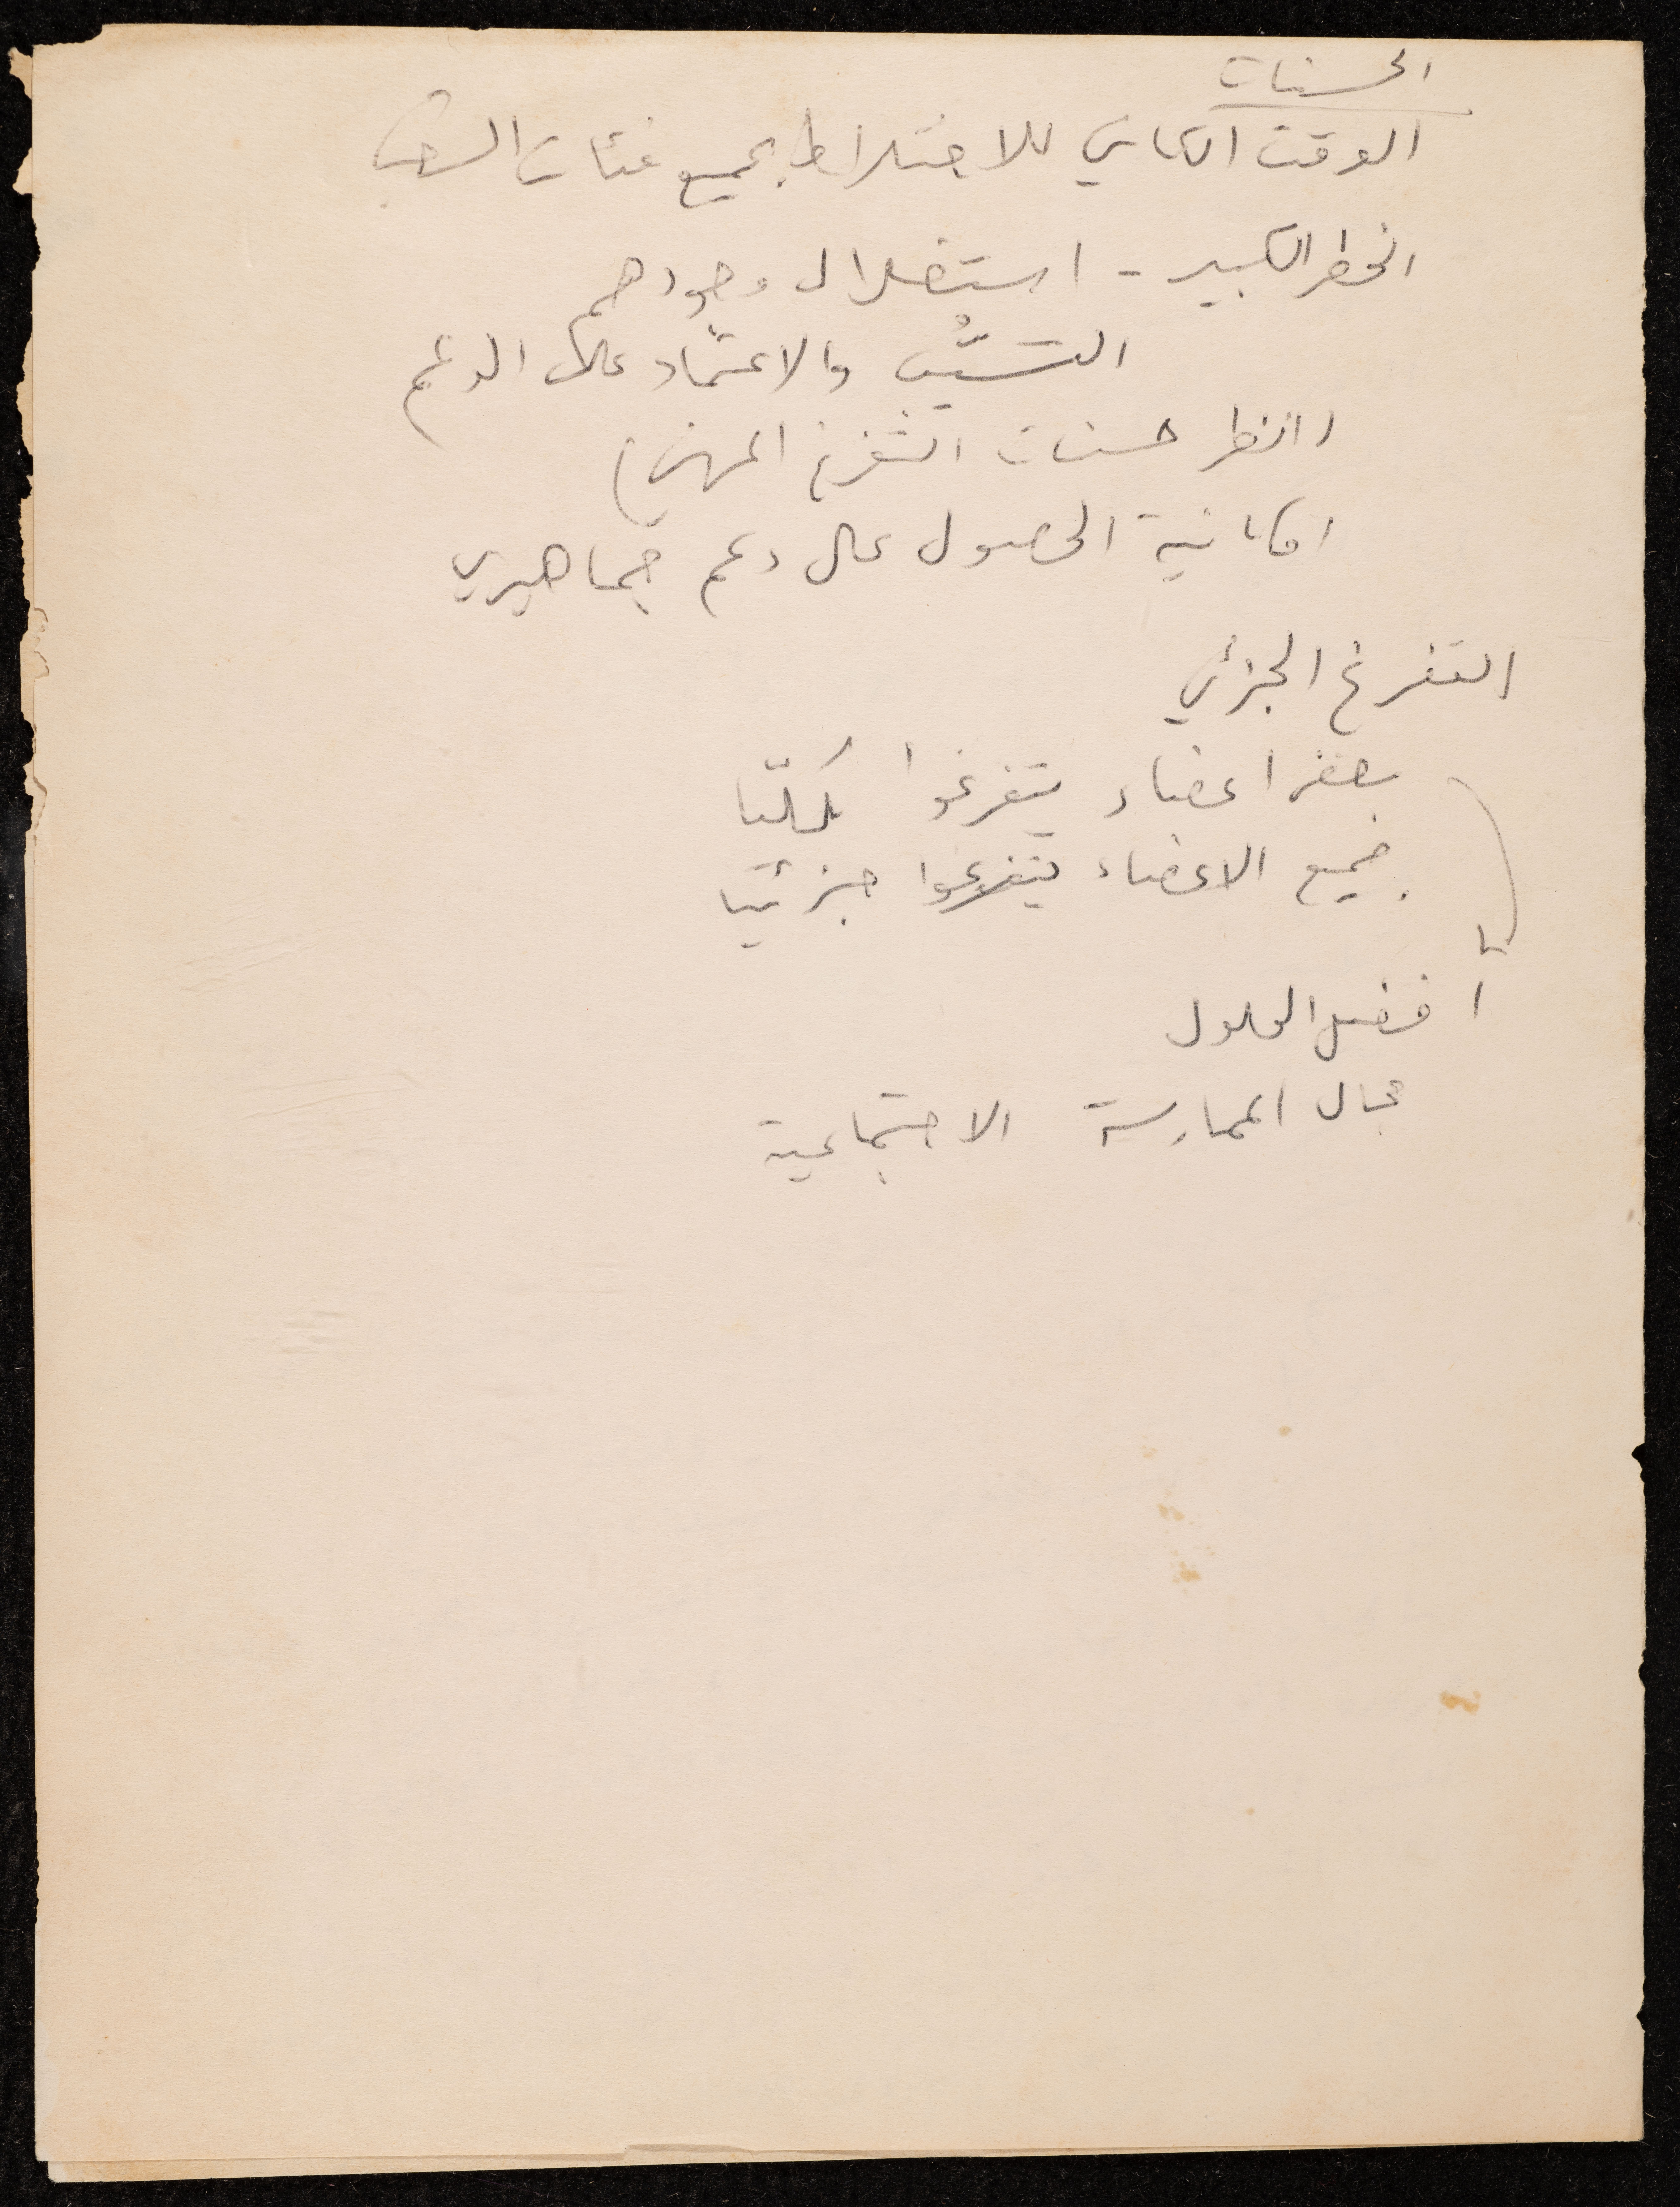 الحسنات
الوقت الكافي للاختلاط بجميع فئات الشعب
الخطر الكبير - استغلال وجودهم
التسيّب والاعتماد على الدعم
(انظر حسنات التفرغ المهني)
امكانية الحصول على دعم جماهيري
التفرغ الجزئي
بعض اعضاء يتفرغوا كليّا
جميع الاعضاء يتفرغوا جزئيا
أفضل الحلول
مجال الممارسة الاجتماعية